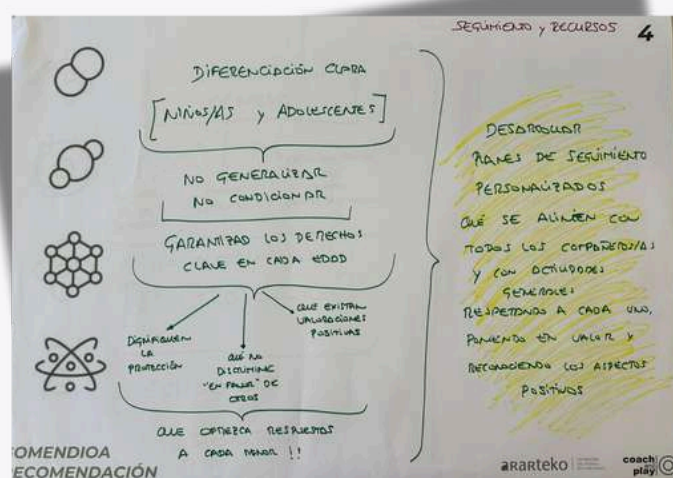 SEGUIMIENTO y RECURSOS 4
DIFERENCIACIÓN CLARA
[NIÑOS/AS y ADOLESCENTES]
NO GENERALIZAR
NO CONDICIONAR
GARANTIZAR LOS DERECHOS
CLAVE EN CADA EDAD
DIGNIFIQUEN
LA
PROTECCIÓN
QUE NO
DISCRIMINE
"EN FAVOR" DE
OTROS
QUE EXISTAN
VALORACIONES
POSITIVAS
QUE OFREZCA RESPUESTAS
A CADA MENOR !!
DESARROLLAR
PLANES DE SEGUIMIENTO
PERSONALIZADOS
QUE SE ALINIEN CON
TODOS LOS COMPAÑEROS/AS
Y CON ACTIVIDADES
GENERALES
RESPETANDO A CADA UNO,
PONIENDO EN VALOR Y
RECONOCIENDO LOS ASPECTOS
POSITIVOS
OMENDIOA
ECOMENDACIÓN
ararteko
coach
play